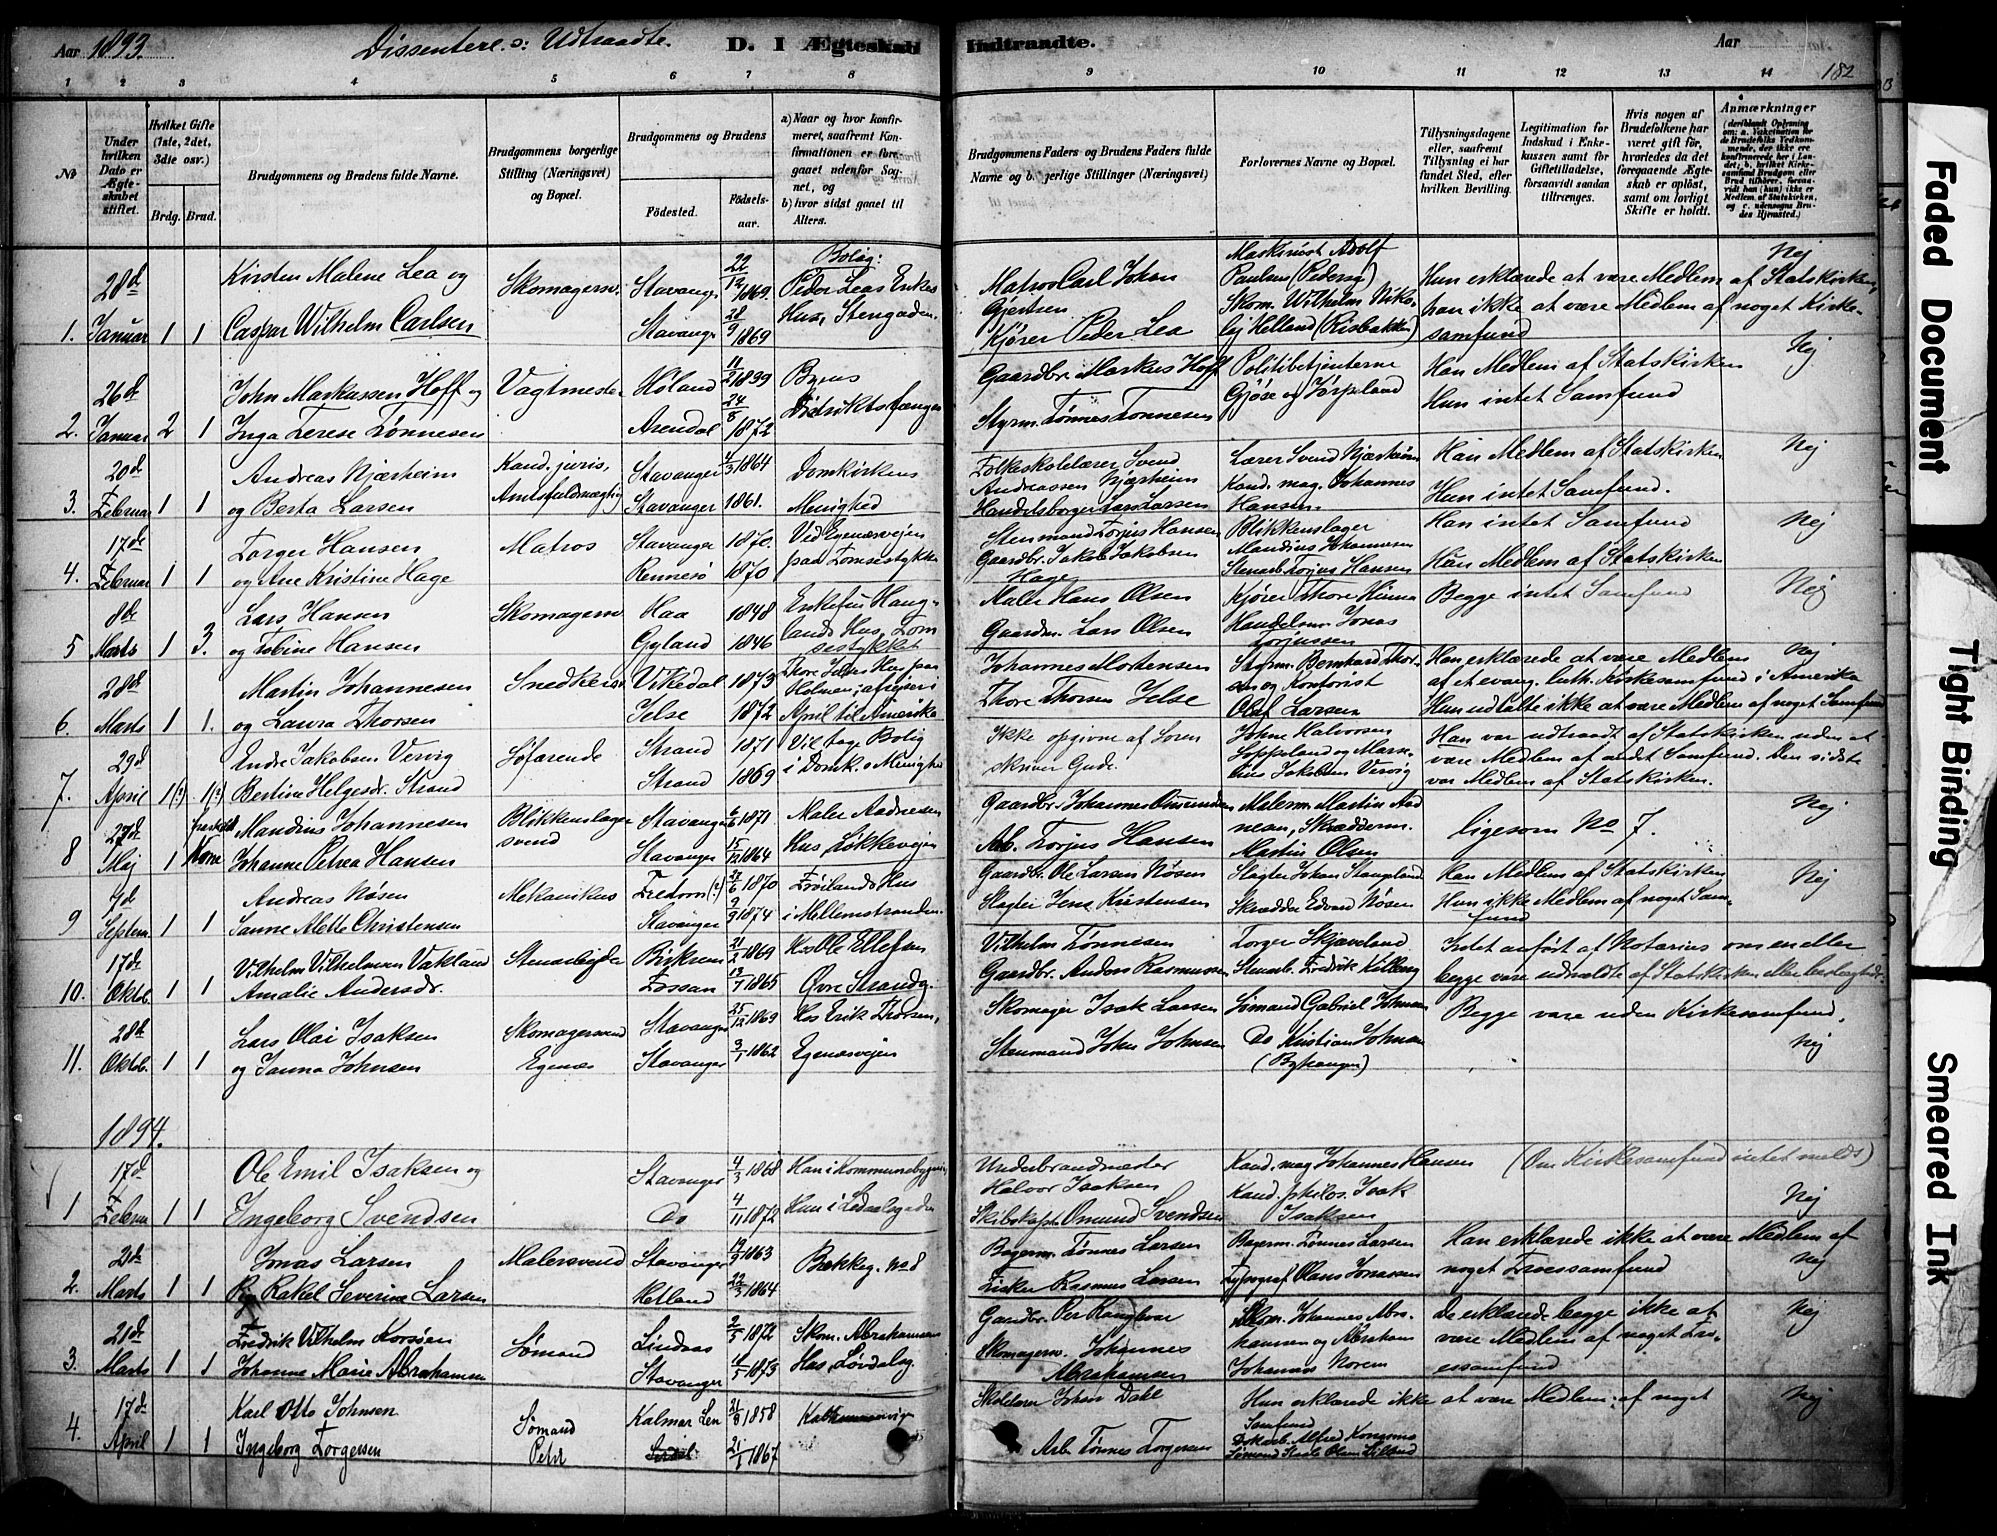 Aar 1893. Dissentere o: Udtraadte. D. I Ægteskab Indtraadte. Aar
182
1 2 3 4 5 6 7 8 9 10 11 12 13 14
No
Under hvilken Dato er Ægteskabet stiftet.
Hvilket Gifte (1ste, 2det, 3dte osv.)
Brdg. Brud.
Brudgommens og Brudens fulde Navne.
Brudgommens borgerlige Stilling (Næringsvei) og Bopæl.
Brudgommens og Brudens
Fødested. Fødselsaar.
a) Naar og hvor konfirmeret, saafremt Konfirmationen er foregaaet udenfor Sognet, og
b) hvor sidst gaaet til Alters.
Brudgommens Faders og Brudens Faders fulde Navne og borgerlige Stillinger (Næringsvei)
Forlovernes Navne og Bopæl.
Tillysningsdagene eller, saafremt Tillysning ei har fundet Sted, efter hvilken Bevilling.
Legitimation for Indskud i Enkekassen samt for Giftetilladelse, forsaavidt saadan tiltrænges.
Hvis nogen af Brudefolkene har været gift før, hvorledes da det foregaaende Ægteskab er opløst, samt om lovligt Skifte er holdt.
Anmærkninger
1. 28de Januar 1 1
Kirsten Malene Lea og
Caspar Wilhelm Carlsen
Skomagersv. Stavanger 22/12 1869.
Stavanger 28/9 1869
Bolig:
Peder Leas Enkes
Hus, Stengaden.
Matros Carl Johan
Gjertsen
Kjører Peder Lea
Maskinist Adolf
Paulsen (Pedersg)
Skom. Wilhelm Niko-
laj Helland (Risbakken)
Hun erklærede at være Medlem af Statskirken,
han ikke at være Medlem af noget Kirke-
samfund
Nej
2. 26de Januar 2 1
John Markussen Hoff og
Inga Terese Tønnesen
Vagtmester Høland 11/2 1839
Arendal 24/8 1872
Byens
Distriktsfængsel
Gaardbr. Markus Hoff
Styrm. Tønnes Tønnesen
Politibetjenterne
Gjøse og Jørpeland
Han Medlem af Statskirken
Hun intet Samfund
Nej
3. 20de Februar 1 1
Andreas Njærheim
og Berta Larsen
Kand. juris,
Amtsfuldmægtig
Stavanger 4/3 1864
Stavanger 1861.
Domkirkens
Menighed
Folkeskolelærer Svend
Andreassen Njærheim
Handelsborger Lars Larsen
Lærer Svend Njærheim
Kand. mag. Johannes
Hansen.
Han Medlem af Statskirken
Hun intet Samfund.
Nej
4. 17de Februar 1 1
Torger Hansen
og Ane Kristine Hage
Matros Stavanger 1870.
Rennesø 1870
Ved Egenæsvejen
paa Tomsestykket
Stenmand Torjus Hansen
Gaardbr. Jakob Jakobsen
Hage
Blikkenslager
Mandius Johannesen
Stenarb. Torjus Hansen
Han intet Samfund
Hun Medlem af Statskirken
Nej
5 8de Marts 1 3.
Lars Hansen
og Tobine Hansen
Skomagersv Haa 1848
Gyland 1846
Enkefru Haug-
lands Hus, Tom
sestykket
Maler Hans Olsen
Gaardm. Lars Olsen
Kjører Thore Hinna
Handelsm. Jonas
Torjussen
Begge intet Samfund
Nej
6. 28de Marts 1 1.
Martin Johannesen
og Laura Thorsen
Snedkersv. Vikedal 1873
Jelse 1872
Thore Jelses Hus paa
Holmen; afrejser i
April til Amerika
Johannes Mortensen
Thore Thorsen Jelse
Styrm. Bernhard Thor-
sen og Kontorist
Olaf Larsen
Han erklærede at være Medlem
af et evang. luth. Kirkesamfund i Amerika
Hun udtalte ikke at være Medlem af noget Samfund
Nej
7. 29de April 1(?) 1(?)
Endre Jakobsen Vervig
Bertine Helgesdr. Strand
Søfarende Strand 1871
Strand 1869
Vil tage Bolig
i Domk. Menighed
Ikke opgivne af Soren
skriver Gude.
Johne Halvorsen
og
Jakobsen Vervig
Han var udtraadt af Statskirken uden at
være Medlem af andet Samfund. Den sidste
var Medlem af Statskirken.
8 27de Maj 1
Mandius Johannesen
Johanne Petrea Hansen
Blikkenslager
svend
Stavanger 6/6 1871.
Stavanger 15/12 1864
Maler Aadnesen
Hus, Løkkevejen
Gaardbr. Johannes Omundsen
Arb. Torjus Hansen
Malerm. Martin Aad
nesen, Skrædderm.
Martin Olsen
ligesom No 7.
Nej
9 9de Septem. 1 1
Andreas Nøsen
Sanne Alette Christensen
Mekanikus 1870
Stavanger 9/9 1874
Frøilands Hus
i Mellemstranden.
Gaardbr. Ole Larsen Nøsen
Slagter Jens Kristensen
Slagter Johan Stangeland
Skrædder Edvard Nøsen
Han Medlem af Statskirken
Hun ikke Medlem af noget Sam-
fund
Nej
10. 17de Oktob. 1 1
Vilhelm Vilhelmsen Vakland
Amalie Andersdr.
Stenarbejder Birkrem 21/2 1869
Fossan 13/7 1865
Hos Ole Ellefsen
Øvre Strandg.
Vilhelm Tønnesen
Gaardbr. Anders Rasmussen
Torger Skjæveland
Stenarb. Fredrik Kolberg
Intet anført af Notarius om en eller
begge vare udmeldte af Statskirken eller
11. 28de Oktob. 1 1
Lars Olai Isaksen
og Janna Johnsen
Skomagersvend
Egenæs
Stavanger 25/12 1869
Stavanger 3/1 1862
Hos Erik Thorsen,
Egenæsvejen
Skomager Isak Larsen
Stenmand John Johnsen
Sømand Gabriel Johnsen
Do Kristian Johnsen
(Byhaugen)
Begge vare uden Kirkesamfund.
Nej
1894.
1 17de Februar 1 1
Ole Emil Isaksen og
Ingeborg Svendsen
Stavanger 4/3 1868
Do 4/11 1872
Han i Kommunebygning
Hun i Ledaalsgaden
Underbrandmester
Halvor Isaksen
Skibskapt. Omund Svendsen
Kand. mag. Johannes Hansen
Kand. philos. Isak
Isaksen
(Om Kirkesamfund intet meldt)
Nej
2. 21de Marts 1 1
Jonas Larsen
Rakel Severine Larsen
Malersvend Stavanger 19/9 1863
Hetland 22/3 1864
Bakkeg. No 8
Bagerm. Tønnes Larsen
Fisker Rasmus Larsen
Bagerm. Tønnes Larsen
Typograf Olaus Jonassen
Han erklærede ikke at være Medlem af
noget Troessamfund
Nej
3. 21de Marts 1 1
Fredrik Vilhelm Korsøen
Johanne Marie Abrahamsen
Sømand Lindaas 2/5 1872
Stavanger 1873
Skom. Abrahamsen
Hus, Løvdalsg.
Gaardbr. Per
Skomagerm. Johannes
Abrahamsen
Skom. Johannes Abra-
hamsen og Abraham
Johannes Norem
De erklærede begge ikke at
være Medlem af noget Tro-
essamfund
Nej
4. 17de April 1 1
Karl Otto Johnsen
Ingeborg Torgersen
Sømand
Kalmar Len 21/8 1858
21/1 1867
Skolelærer Johan Dahl
Arb. Tønnes Torgersen
Hun erklærede ikke at være Medlem af noget
Samfund
Nej
Faded Document
Tight Binding
Smeared Ink